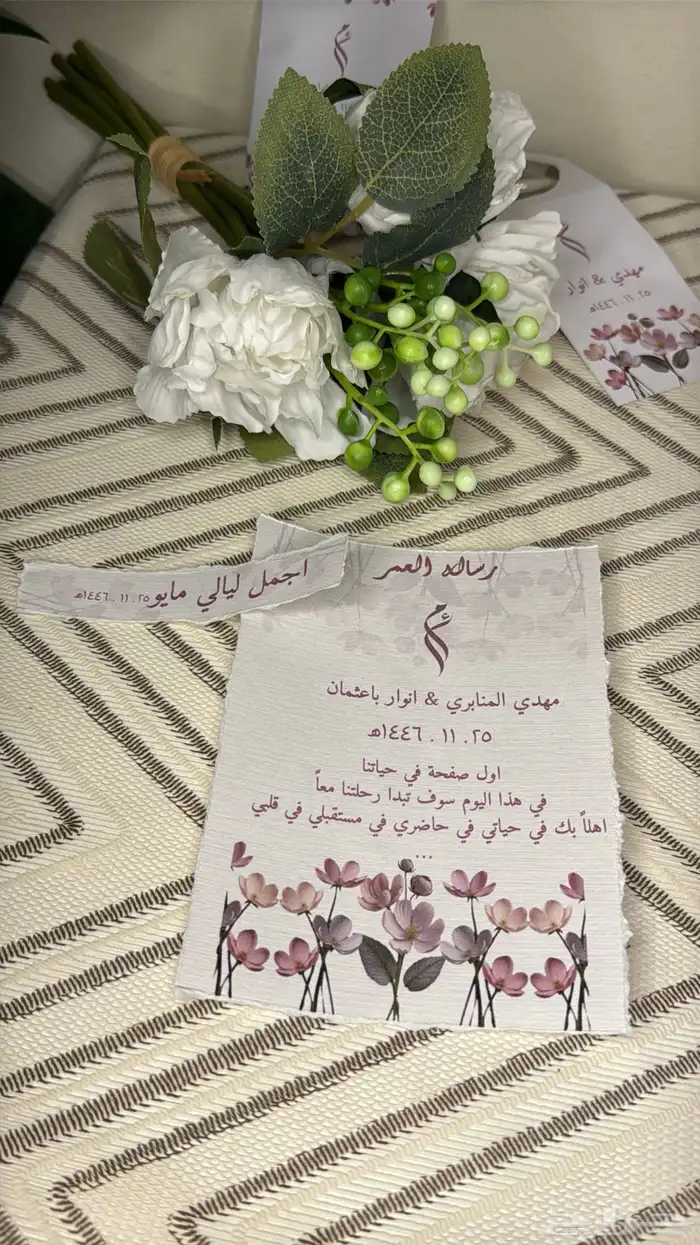 مهدي & انوار
٢٥. ١١. ١٤٤٦هـ
اجمل ليالي مايو ٢٥. ١١. ١٤٤٦هـ
رساله العمر
مهدي المنابري & انوار باعثمان
٢٥. ١١. ١٤٤٦هـ
اول صفحة في حياتنا
في هذا اليوم سوف تبدا رحلتنا معاً
اهلاً بك في حياتي في حاضري في مستقبلي في قلبي
...